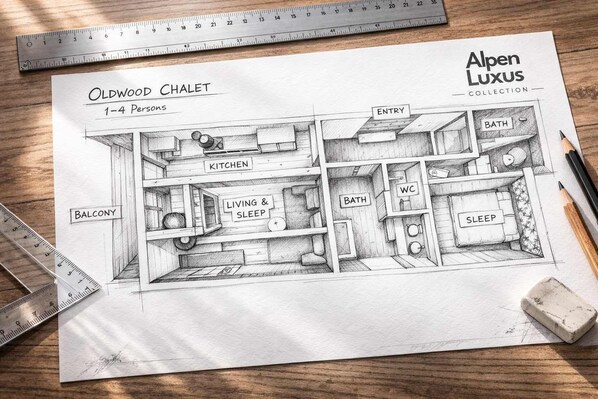 Alpen
Luxus
COLLECTION
OLDWOOD CHALET
1-4 Persons
ENTRY
BATH
KITCHEN
BALCONY
LIVING &
SLEEP
BATH
WC
SLEEP